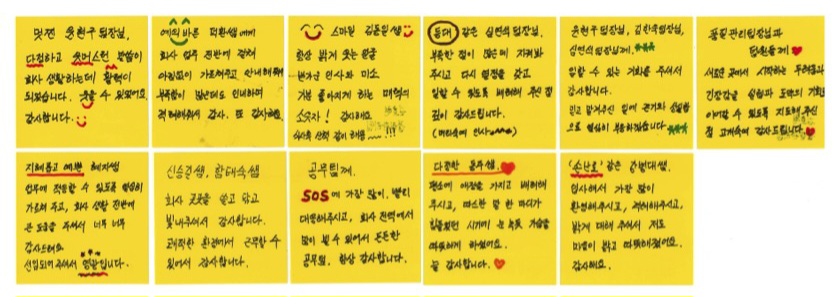 멋쩐 윤현구 팀장님,
다정하고 유머스런 말씀이
회사 생활하는데 활력이
되었습니다. 웃을 수 있었어요.
감사합니다.
예의 바른 덕환쌤에게
회사 업무 전반에 걸쳐
아낌없이 가르쳐주고 안내해줘
부족함이 많은데도 인내하며
격려해줘서 감사. 또 감사해요.
스마일 김동일쌤
항상 밝게 웃는 얼굴
반가운 인사와 미소
기분 좋아지게 하는 매력의
소유자! 감사해요
등대 같은 심연숙팀장님.
부족한 점이 많은데 지켜봐
주시고 다시 열정을 갖고
일할 수 있도록 배려해 주신 점
깊이 감사드립니다.
(머리숙여 인사
윤현구팀장님, 김한숙팀장님,
심연숙팀장님께.
일할 수 있는 기회를 주셔서
감사합니다.
믿고 맡겨주신 일에 끈기와 성실함
으로 열심히 부응하겠습니다.
품질관리팀장님과
팀원들께
새로운 곳에서 시작하는 두려움과
긴장감을 설렘과 도약의 기회로
이어갈 수 있도록 지도해 주신
점 고개숙여 감사드립니다.
지혜롭고 예쁜 혜지쌤
업무에 적응할 수 있도록 열심히
가르쳐 주고, 회사 생활 전반에
큰 도움을 주셔서 너무 너무
감사드려요.
선임되어주셔서 영광입니다.
신승길쌤, 함태숙쌤
회사 곳곳을 쓸고 닦고
빛내주셔서 감사합니다.
쾌적한 환경에서 근무할 수
있어서 감사합니다.
공무팀께.
SOS에 가장 많이. 빨리
대응해주시고, 회사 전력에서
많이 볼 수 있어서 든든한
공무팀. 항상 감사합니다.
다정한 동주쌤.
평소에 애정을 가지고 배려해
주시고, 따스한 말 한 마디가
힘들었던 시기에 눈 녹듯 가슴을
따뜻하게 하였어요.
늘 감사합니다.
'손난로' 같은 강별대쌤.
입사해서 가장 많이
환영해주시고, 격려해주시고,
밝게 대해 주셔서 저도
마음이 밝고 따뜻해졌어요.
감사해요.